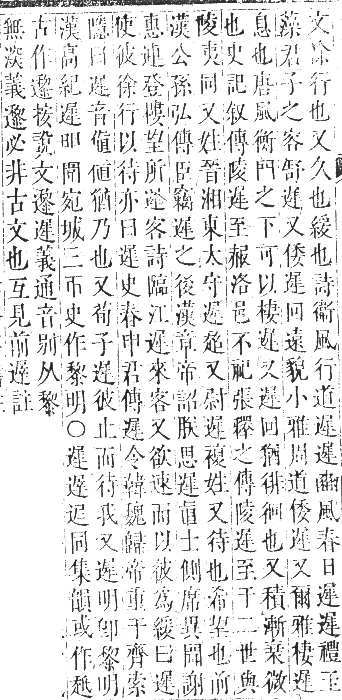 文徐行也又久也緩也詩衛風行道遲遲豳風春日遲遲禮玉
藻君子之容舒遲又倭遲回遠貌小雅周道倭遲又爾雅棲遲
息也唐風衡門之下可以棲遲又遲回猶徘徊也又積漸柔微
也史記叙傳陵遲至赧洛邑不祀張釋之傳陵遲至于二世與
陵夷同又姓晉湘東太守遲又尉遲複姓又待也希望也前
漢公孫弘傳臣竊遲之後漢章帝詔朕思遲直士側席異聞謝
惠連登樓望所遲客詩臨江遲來客又欲速而以彼為緩曰遲
使彼徐行以待亦曰遲史春申君傳遲令韓魏歸帝重于齊索
隱曰遲音值值猶乃也又荀子遲彼止而待我又遲明卽黎明
漢高紀遲明圍宛城三帀史作黎明○遲遟迟同集韻或作赿
古作邌按說文邌遲義通音别从黎
無淡義邌必非古文也互見前遟註